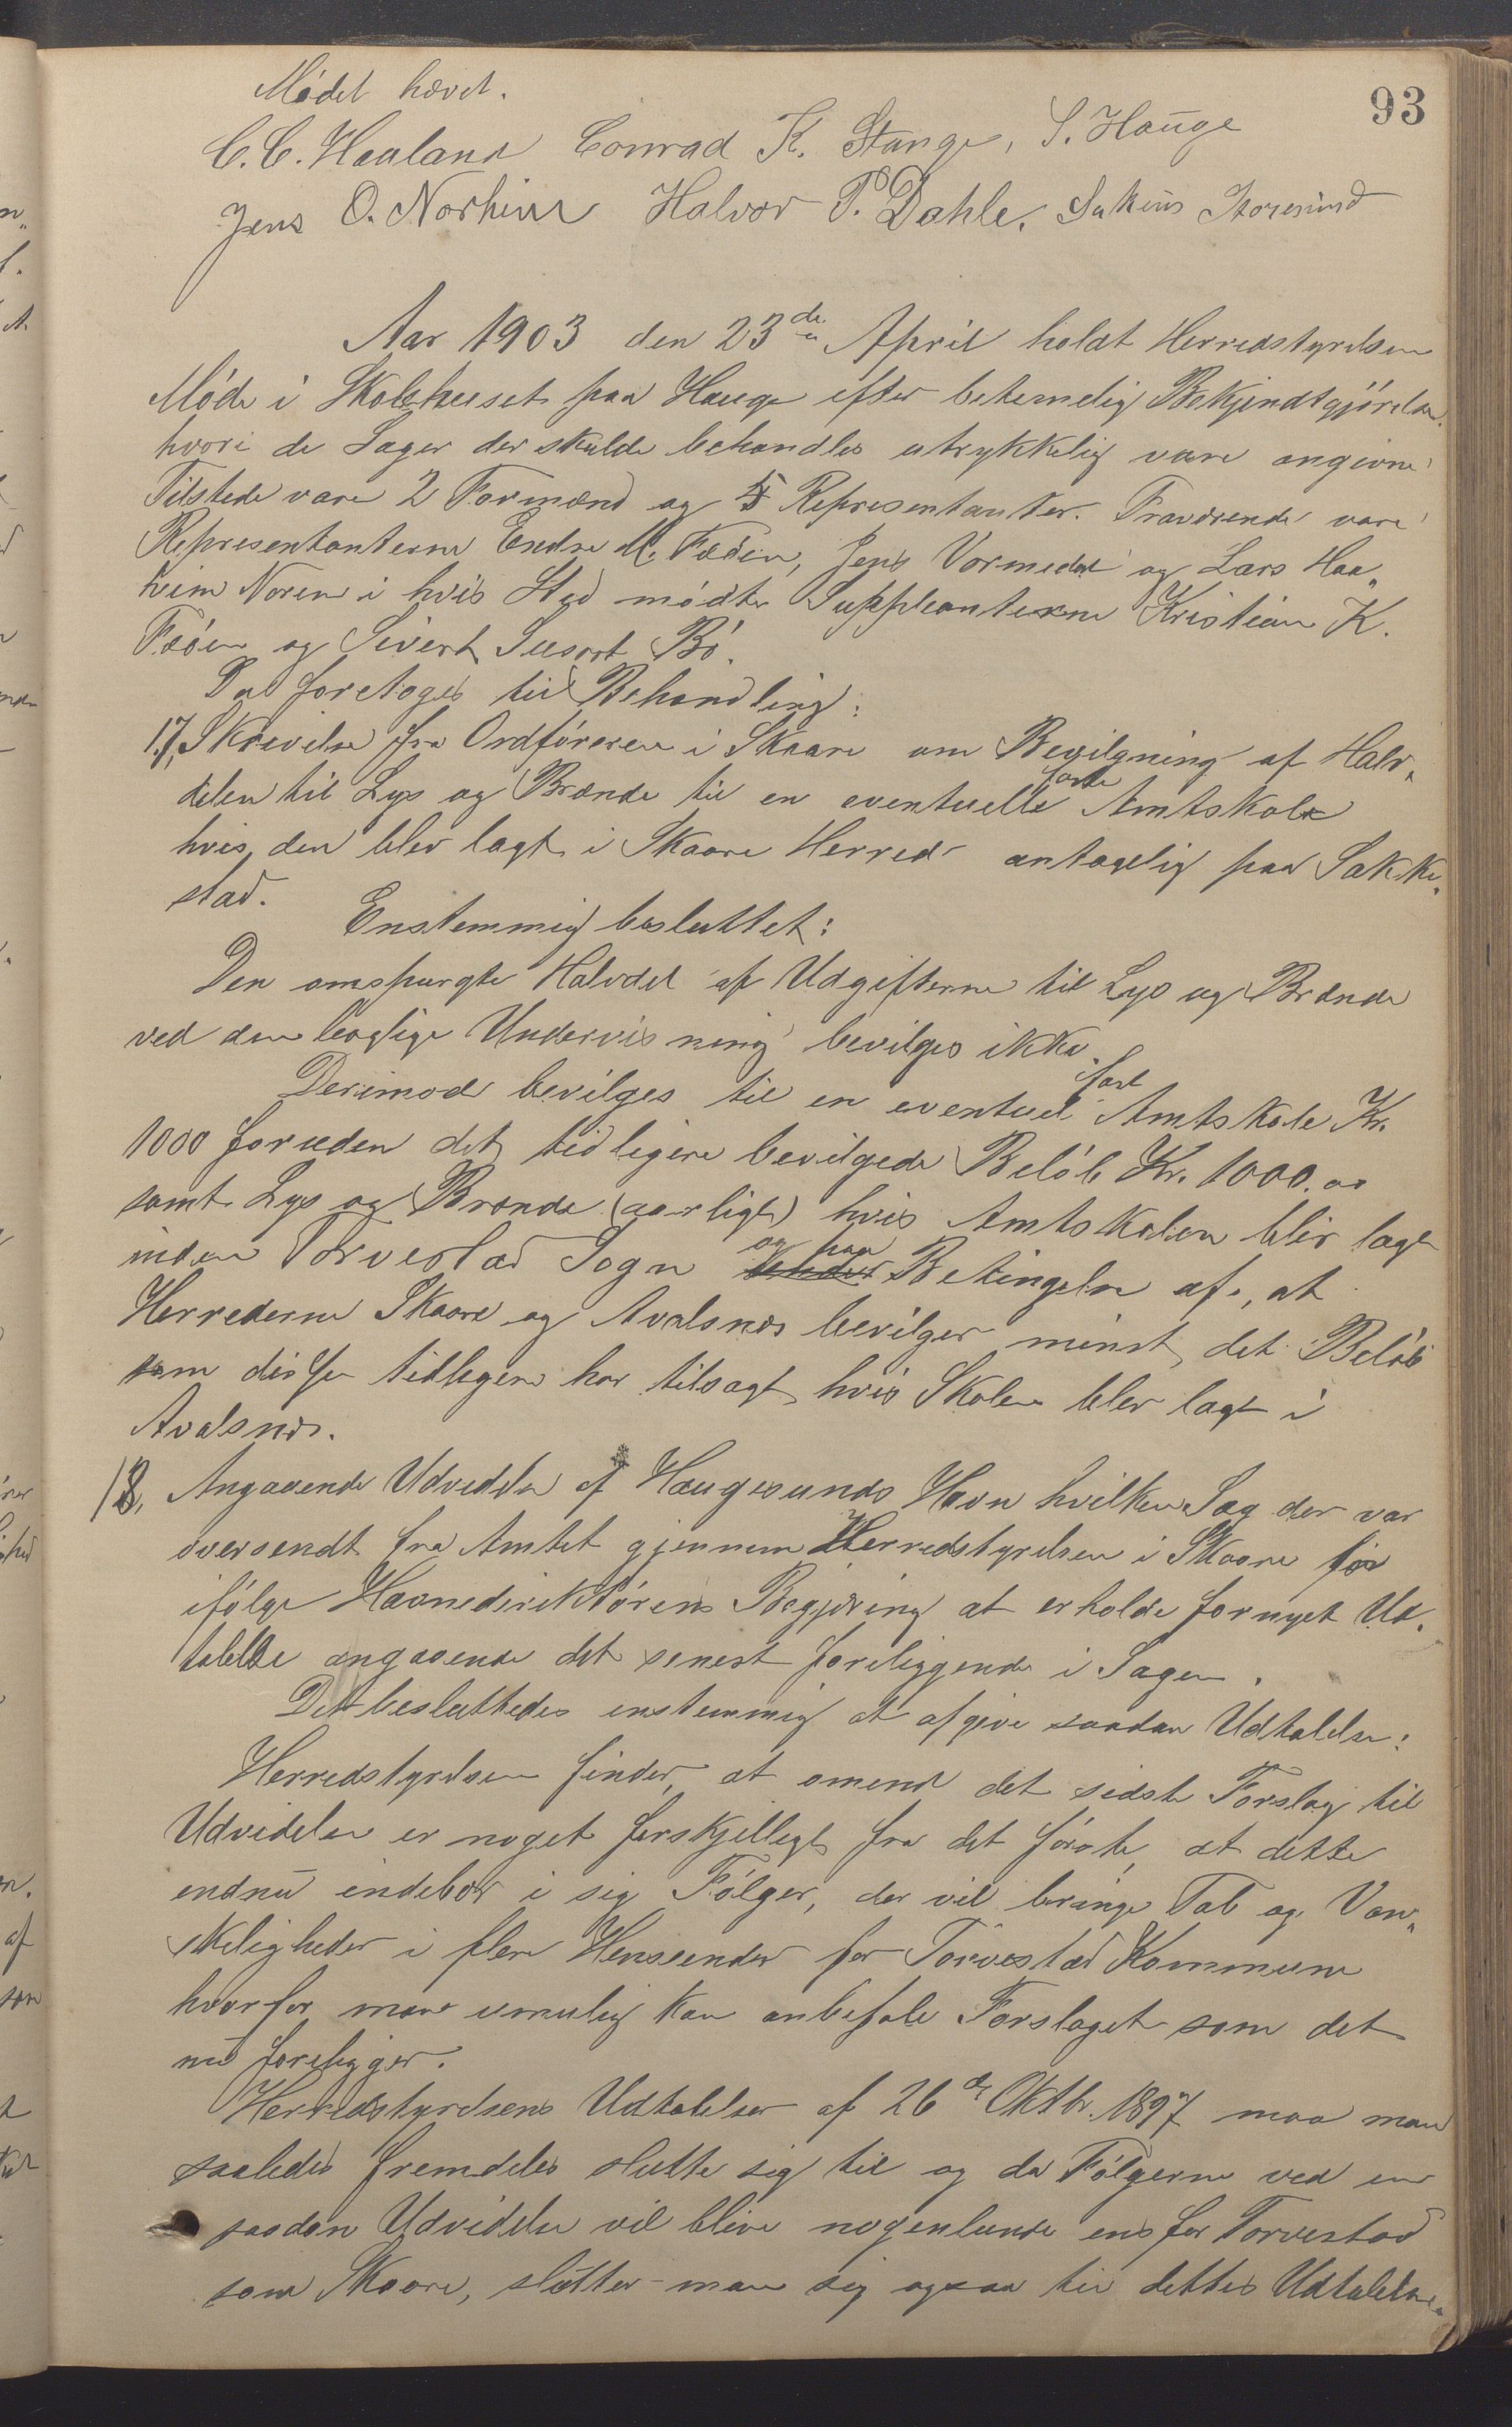 93
Mödet hævet.
C. C. Haaland Conrad K. Stange, S. Hauge
Jens O. Norheim Halvor P. Dahle, Sakius Storesund
Aar 1903 den 23de April holdt Herredstyrelsen
Möde i Skolehuset paa Hauge efter betimelig Bekjendtgjörelse
hvori de Sager der skulde behandles utrykkelig vare angivne
Tilstede vare 2 Formænd og 5 Representanter. Fraværende vare
Representanterne Endre M. Fæöen, Jens Vormedal og Lars Haa„
heim Noren i hvis Sted mödte Suppleanterne Kristian K.
Fæöen og Sivert Susort Bö.
Da foretoges til Behandling:
17, Skrivelse fra Ordföreren i Skaare om Bevilgning af Halv„
delen til Lys og Brænde til en eventuelle faste Amtskole
hvis den blev lagt i Skaare Herred antagelig paa Sakke„
stad.
Enstemmig besluttet:
Den omspurgte Halvdel af Udgifterne til Lys og Brænde
ved den boglige Undervisning bevilges ikke.
Derimod bevilges til en eventuel fast Amtskole Kr.
1000 foruden det tidligere bevilgede Belöb Kr. 1000.00
samt Lys og Brænde (aarligt) hvis Amtskolen blir lagt
inden Torvestad Sogn og paa Betingelse af, at
Herrederne Skaare og Avalsnes bevilger minst det Belöb
som disse tidligere har tilsagt hvis Skolen blev lagt i
Avalsnes.
18, Angaaende Udvidelse af Haugesunds Havn hvilken Sag der var
oversendt fra Amtet gjennem Herredstyrelsen i Skaare for
ifölge Havnedirektörens Begjæring at erholde fornyet Ud„
talelse angaaende det senest foreliggende i Sagen.
Det besluttedes enstemmig at afgive saadan Udtalelse:
Herredstyrelsen finder, at omend det sidste Forslag til
Udvidelse er noget forskjelligt fra det förste, at dette
endnu indebær i sig Fölger, der vil bringe Tab og Van„
skeligheder i flere Henseender for Torvestad Kommune
hvorfor man umulig kan anbefale Forslaget som det
nu foreligger.
Herredstyrelsens Udtalelser af 26de Oktbr. 1897 maa man
saaledes fremdeles slutte sig til og da Fölgerne ved en
saadan Udvidelse vil blive nogenlunde ens for Torvestad
som Skaare, slutter man sig ogsaa til dettes Udtalelse.